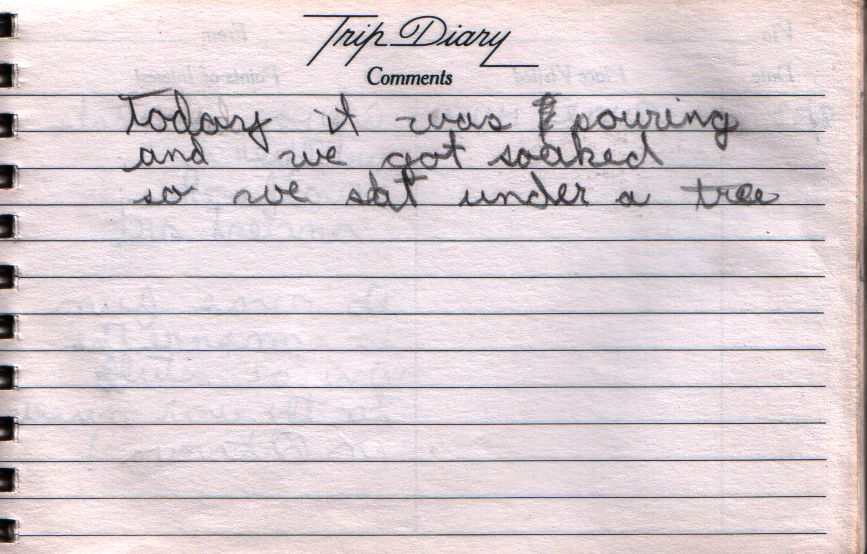 Trip Diary
Comments
Today it was pouring
and we got soaked
so we sat under a tree